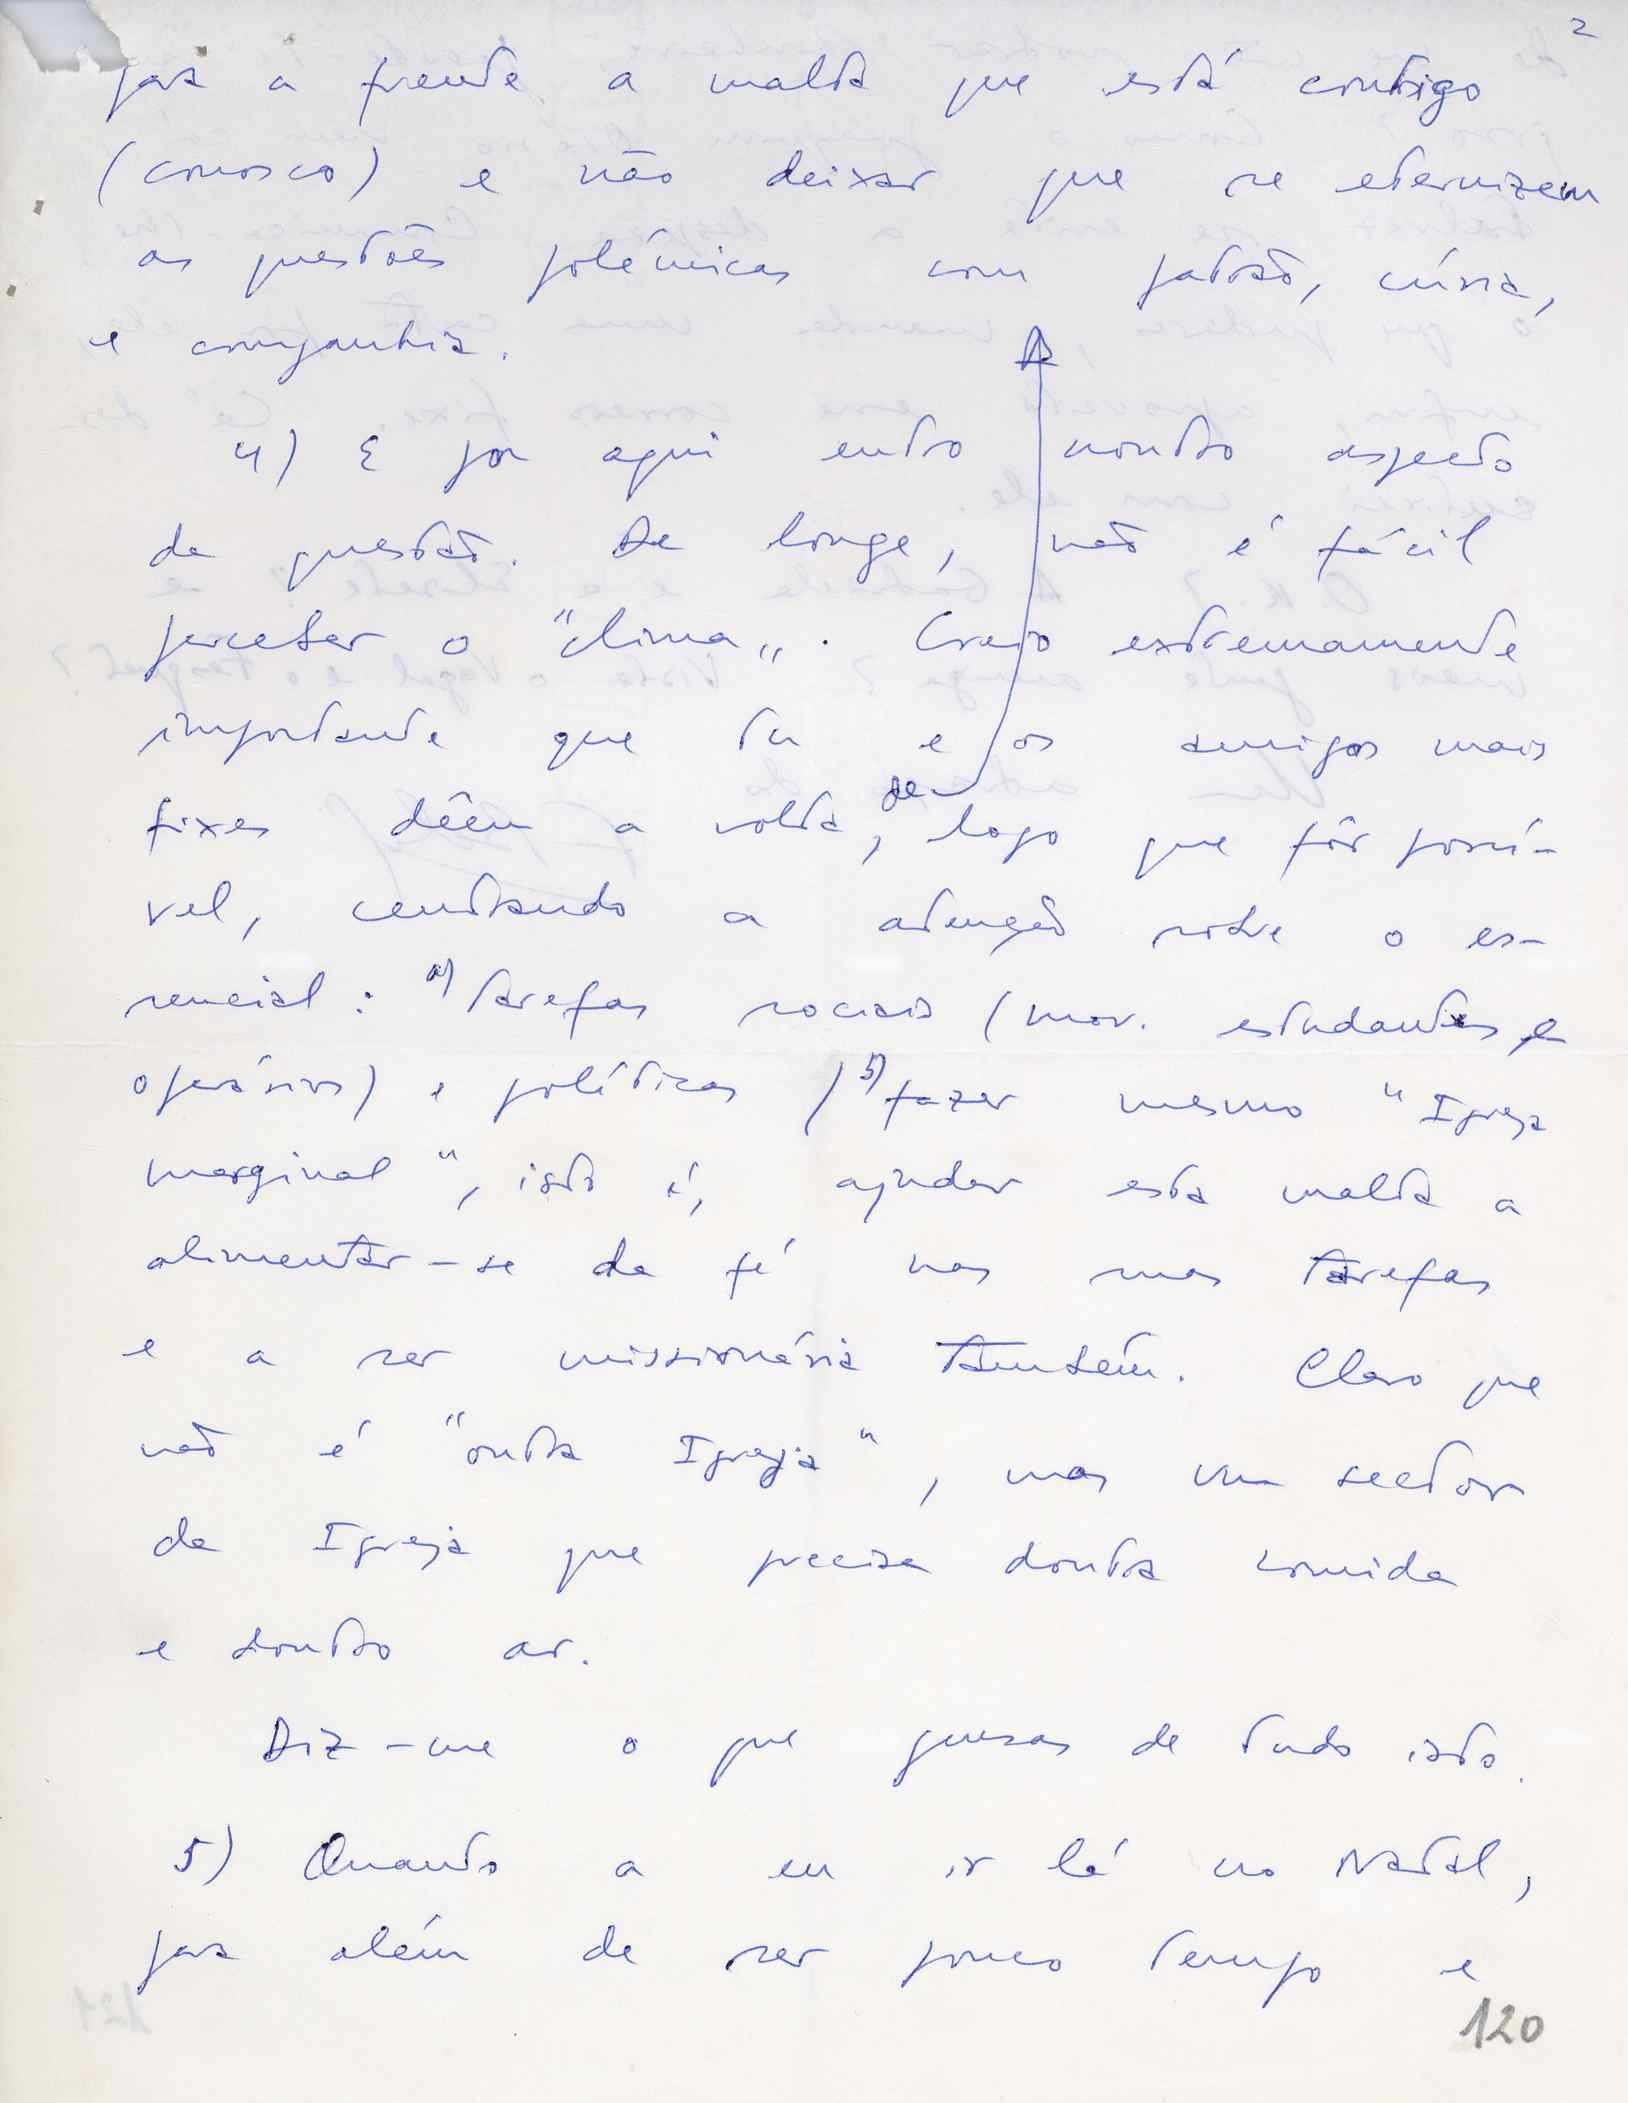 2
para a frente a malta que está contigo
(conosco) e não deixar que se eternizem
as questões polémicas com patrão, cúria,
e companhia.
4) E por aqui entro nontro aspecto
da questão. De longe, não é fácil
perceber o "clima". Creio extremamente
importante que tu e os amigos mais
fixes dêem a volta, de logo que fôr possí-
vel, centrando a atenção sobre o es-
sencial: a) tarefas sociais (mov. estudantes e
operários) e políticas / b) fazer mesmo "Igreja
marginal", isto é, ajudar esta malta a
alimentar-se da fé nas suas tarefas
e a ser missionária também. Claro que
não é "outra Igreja", mas um sector
da Igreja que precisa doutra comida
e doutro ar.
Diz-me o que pensas de tudo isto.
5) Quanto a eu ir lá no Natal,
para além de ser pouco tempo e
120